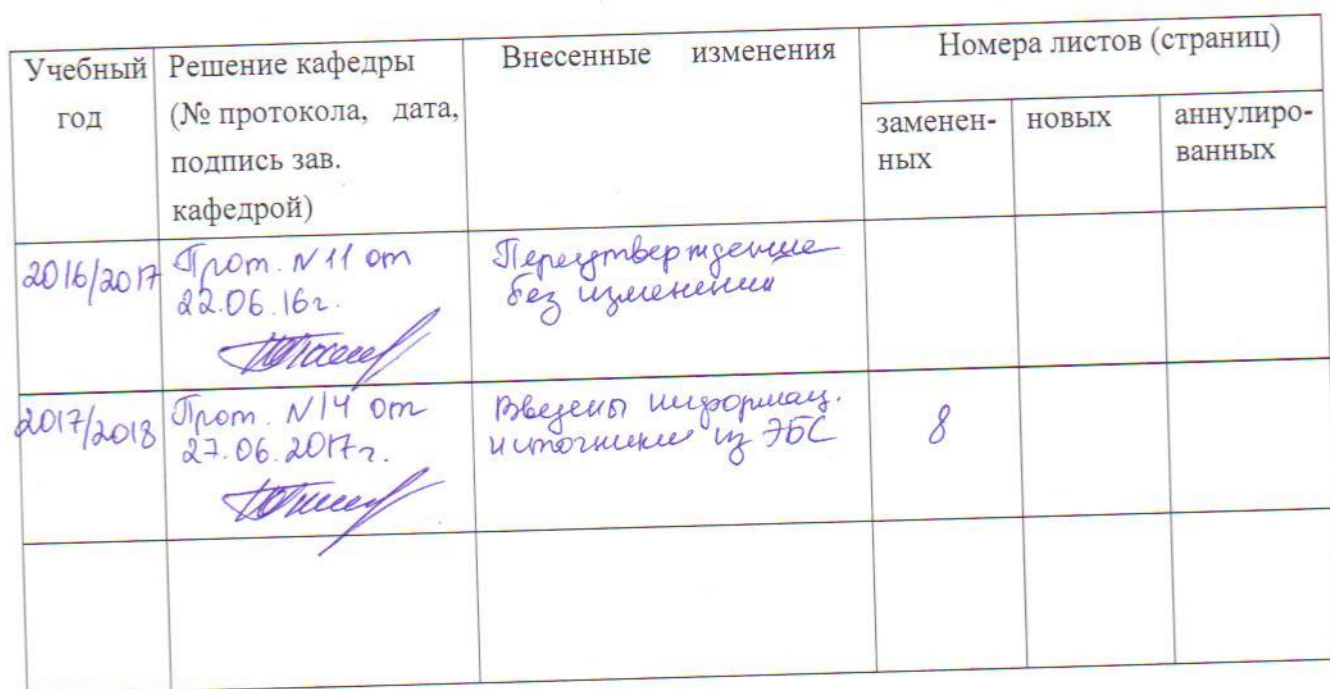 Учебный год
Решение кафедры
(№ протокола, дата,
подпись зав.
кафедрой)
Внесенные изменения
Номера листов (страниц)
заменен-
ных
новых
аннулиро-
ванных
2016/2017
Прот. N 11 от
22.06.16г.
Переутверждение
без изменений
2017/2018
Прот. N 14 от
27.06.2017г.
Введены информац.
источники из ЭБС
8